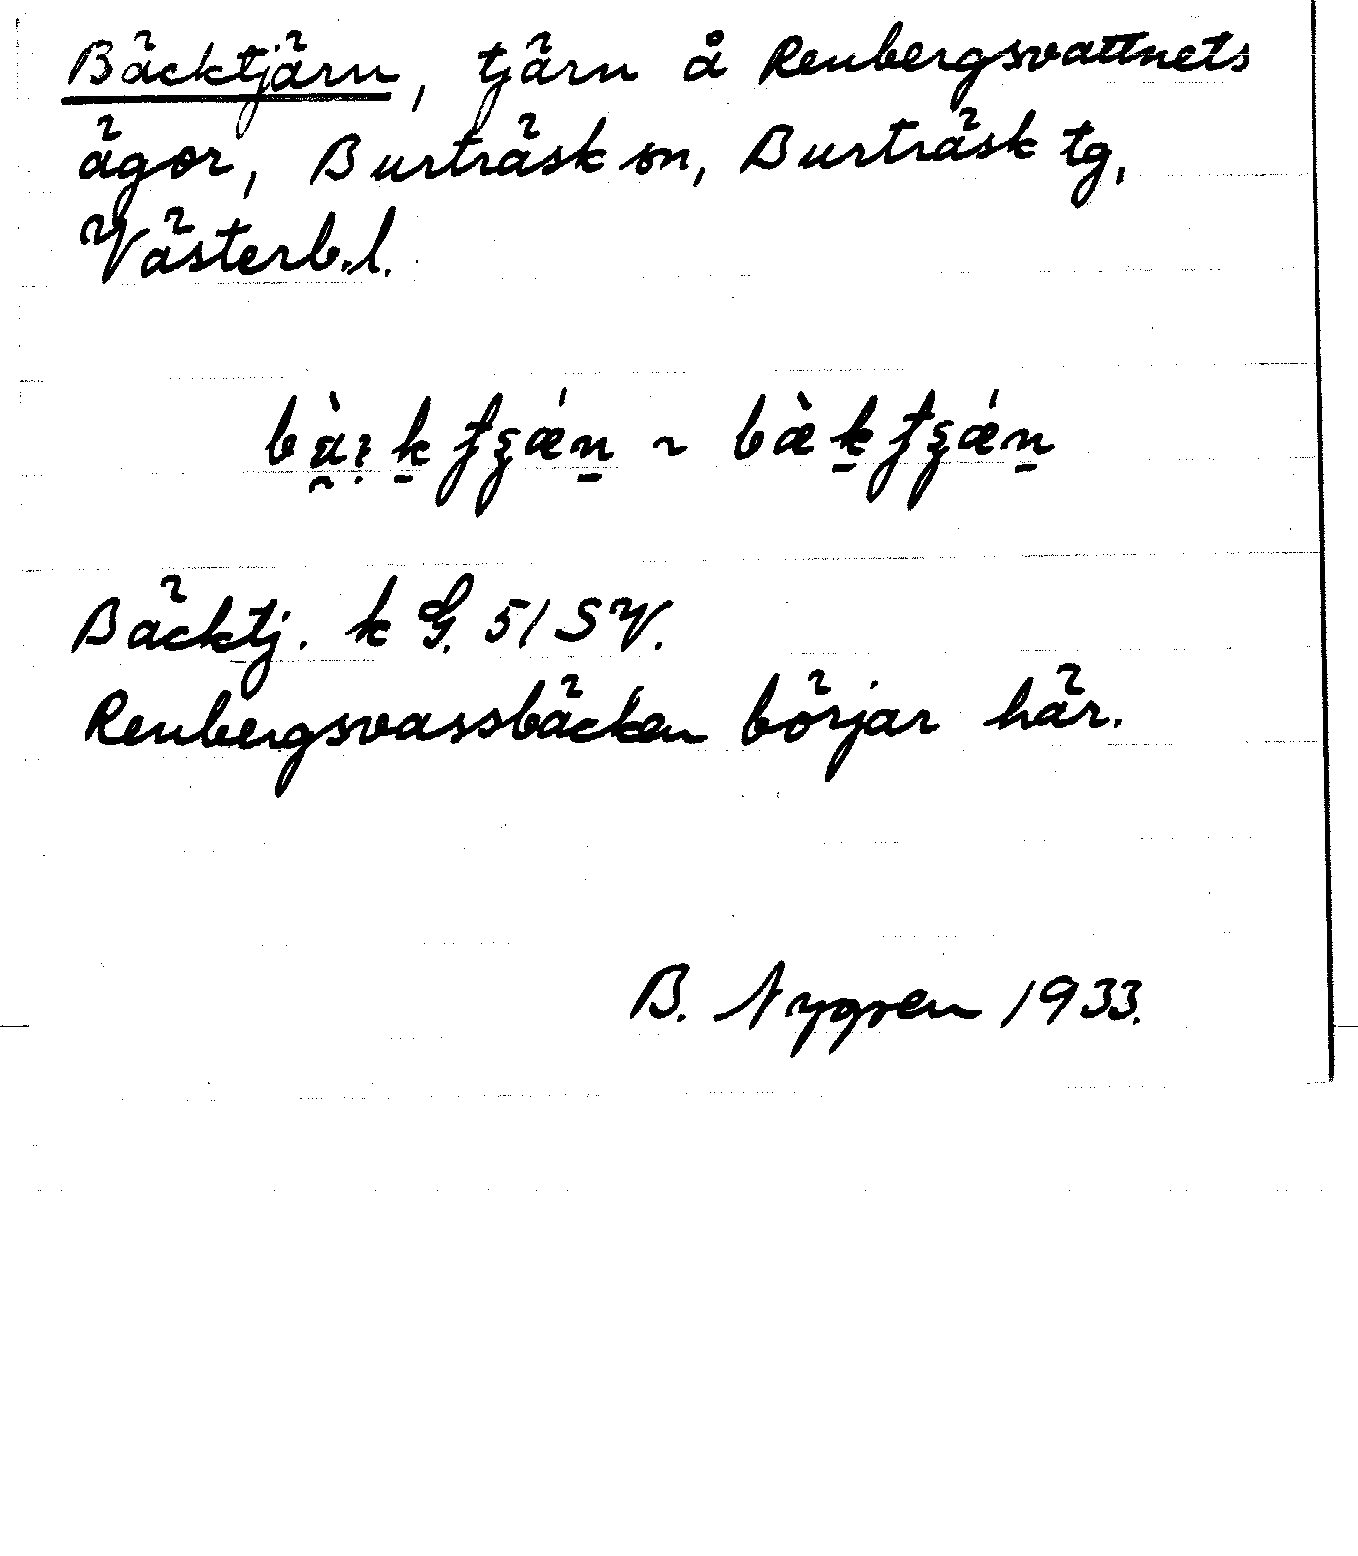 Bäcktjärn, tjärn å Renbergsvattnets
ägor, Burträsk sn, Burträsk tg,
Västerb.l.
Bäcktj. k G. 51 SV.
Renbergsvassbäcken börjar här.
B. Nygren 1933.